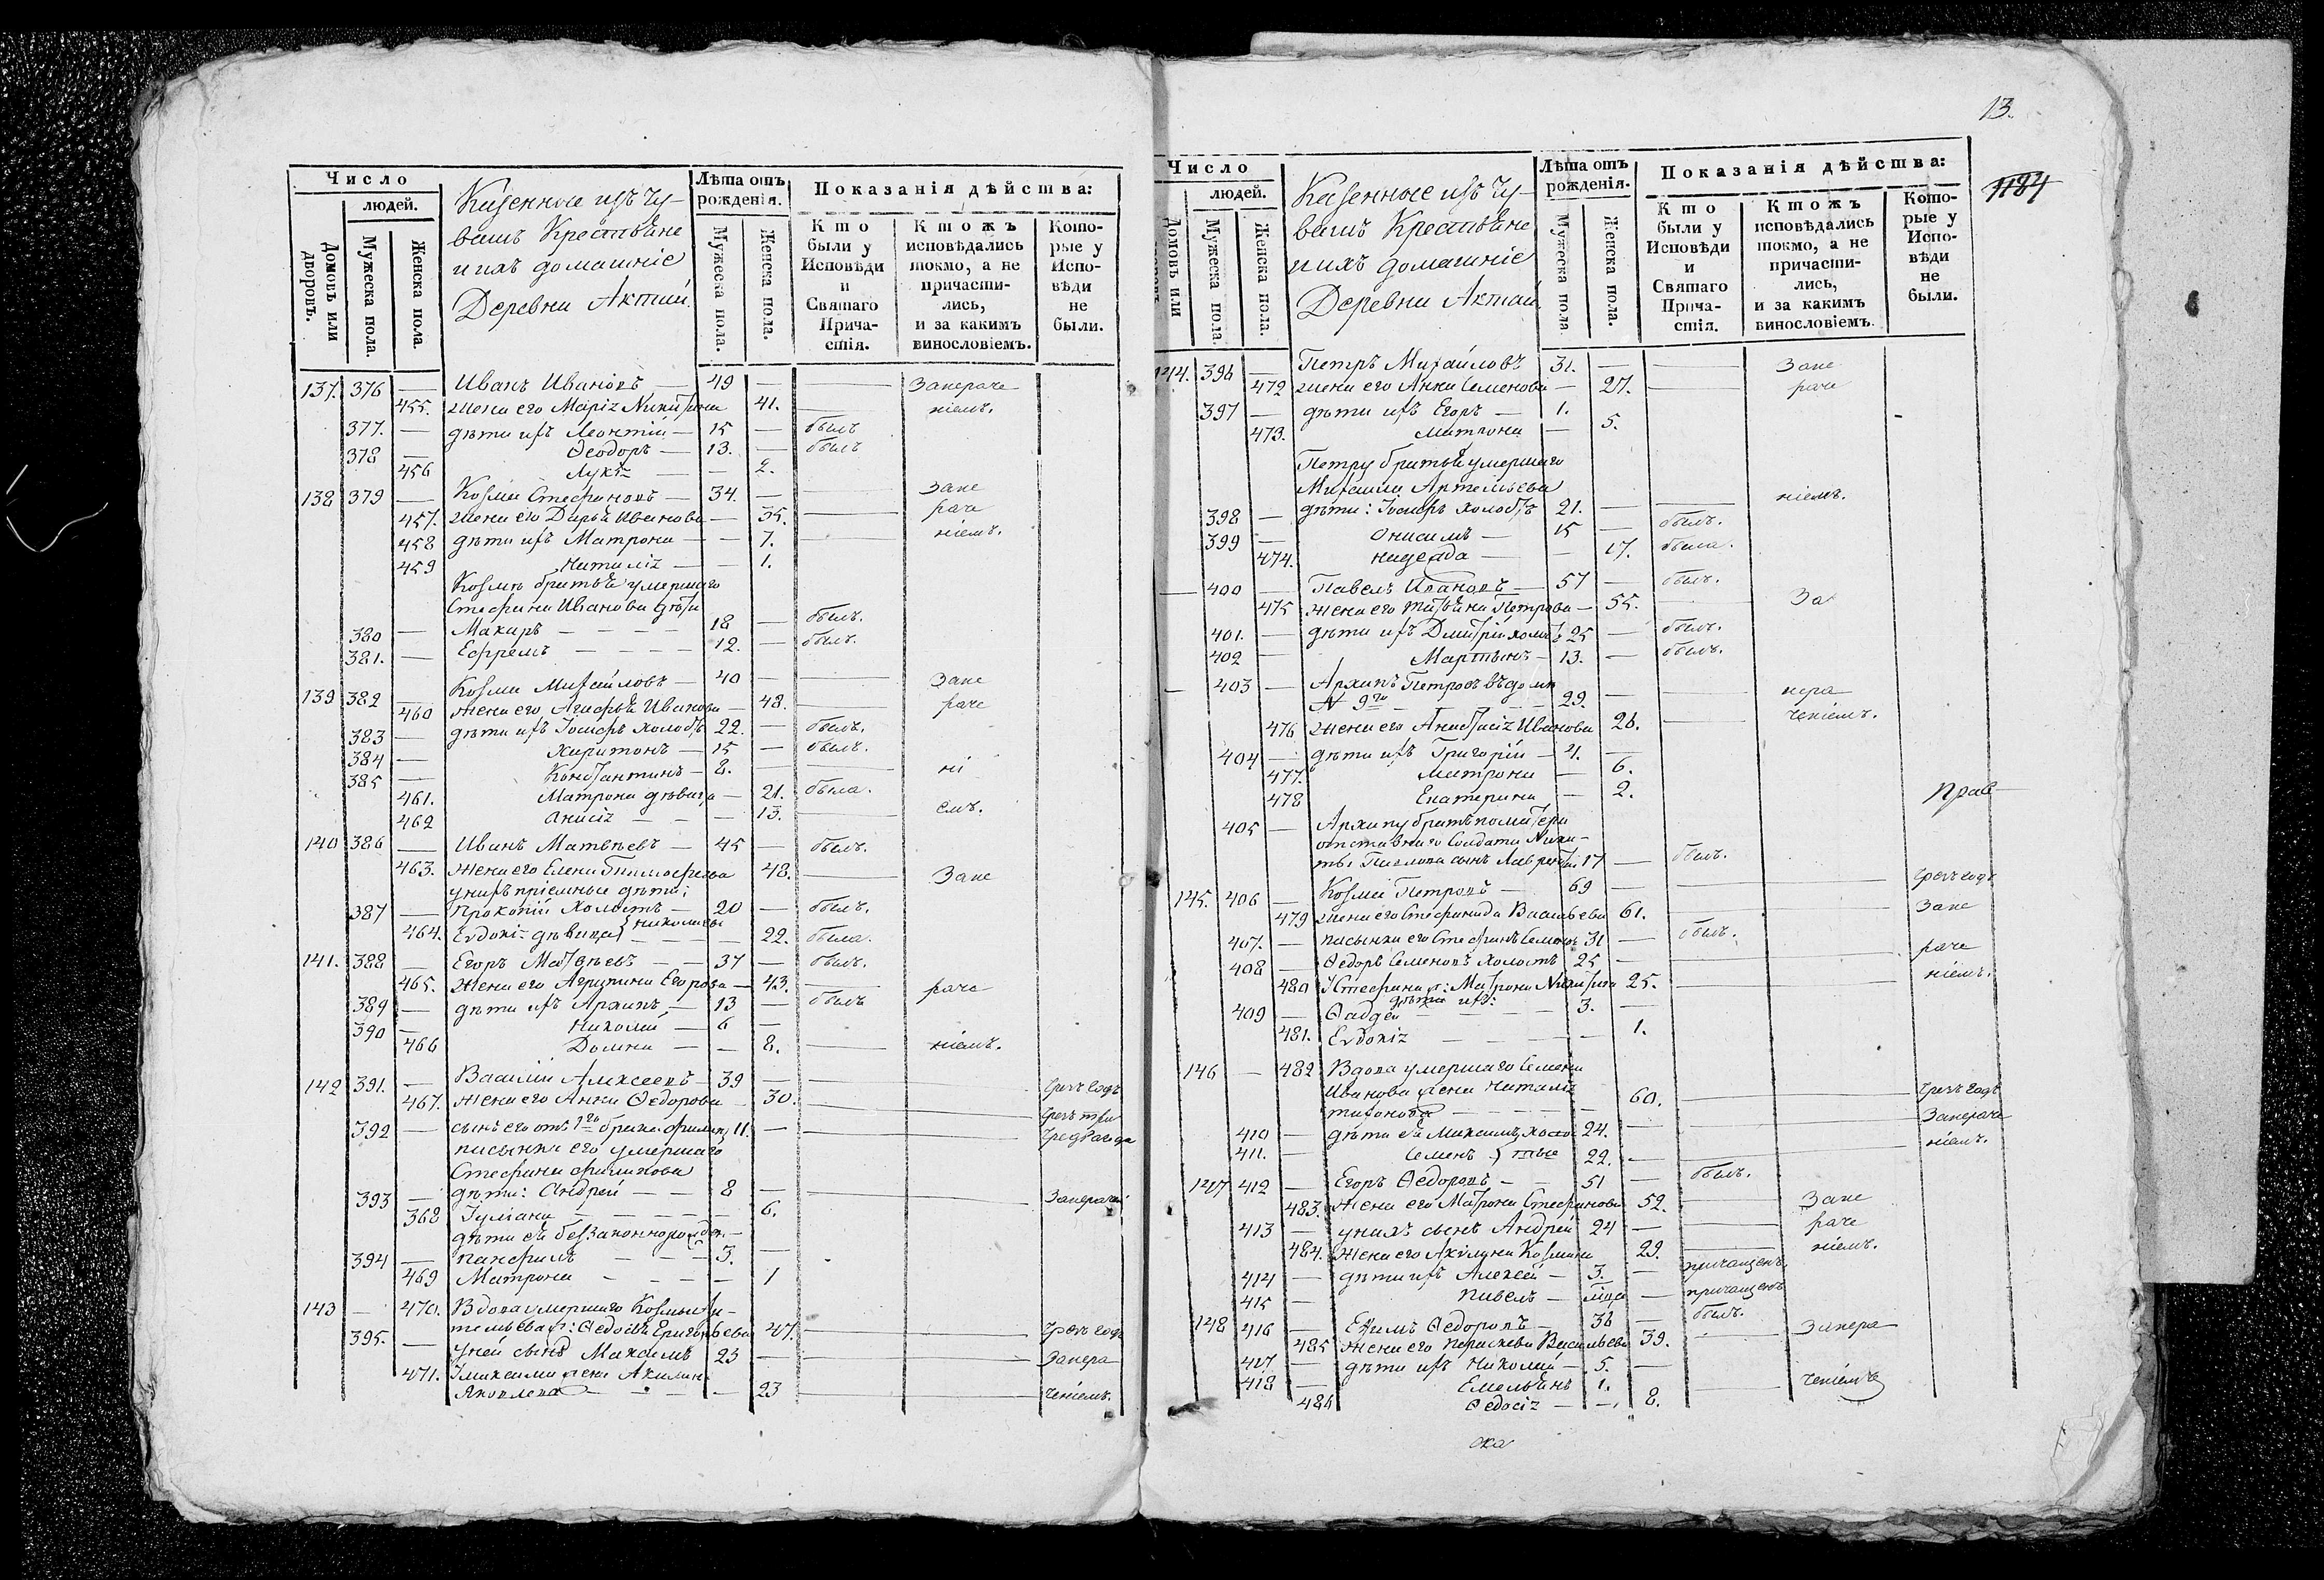 Число
людей.
Домовъ или дворовъ.
Мужеска пола.
Женска пола.
Казенные изъ Чу-
вашъ Крестьяне
и ихъ домашніе
Деревни Актай
Лѣта отъ рожденія.
Мужеска пола.
Женска пола.
Показанія дѣйства:
Кто были у Исповѣди и Святаго Прича-стія.
Ктожъ исповѣдались токмо, а не причасти-лись, и за какимъ винословіемъ.
Кото-рые у Испо-вѣди не были.
137. 376 — Иванъ Ивановъ — 49 — — Занераче
455. жена его Марія Никитина 41. — ніемъ.
377. — дѣти ихъ Леонтій — 15 — былъ
378 — Ѳеодоръ — 13. — былъ
456 — — 2.
138 379 — Козма Стефановъ — 34. — — Зане
457. жена его Дарья Иванова — 35. — раче
458 дѣти ихъ Матрона — — 7. — ніемъ.
459 Наталія — — 1.
Козмы братьа умершаго
Стефана Иванова дѣти
380 — Макаръ — — — — 18 — былъ.
381. — Ефремъ — — — — 12. — былъ.
139 382 — Козма Михайловъ — 40 — — Зане
460 жена его Агафья Иванова — 48. — раче
383 — дѣти ихъ Іосифъ холостъ 22. — былъ.
384 — Харитонъ — 15 — былъ.
385 — Константинъ — 8. — — ні
461. Матрона дѣвица — 21. была.
462 Анисія — — — 13. — емъ.
140 386 — Иванъ Матвѣевъ — 45 — былъ.
463. жена его Елена Тимофеева 48. — Зане
у нихъ пріемные дѣти:
387 — Прокопій холостъ — 20 — былъ.
464. Евдокія дѣвица} Николаевы — — — 22. была.
141. 388 — Егоръ Матвѣевъ — — 37 — былъ.
465. жена его Агрипина Егорова — 43. — раче
389 — дѣти ихъ Архипъ — 13 — былъ
390 — Николай — 6 —
466 Домна — — 8. — ніемъ.
142 391. — Василій Алексеевъ — 39 — — чрезъ годъ
467. жена его Анна Ѳедорова 30. — чрезъ три
392 — сынъ его отъ 1го брака Филипъ 11. — —
пасынка его умершаго
Стефана Филипова
393 — дѣти: Андрей — — 8 — — Занераченіемъ
368 Іуліана — — — — — 6.
дѣти ей беззаконнорожден-
394 — Панфилъ — — — 3. —
469 Матрона — — — — 1
143 — 470. Вдова умершаго Козмы Ан-
темьева ж: Ѳедосья Григорьева 47. — чрезъ годъ
395. — у ней сынъ Максимъ 23 — — Занера
471. У Максима жена Акилина
Яковлева — — — 23 — ченіемъ.
13.
1184
Число
людей.
Домовъ или дворовъ.
Мужеска пола.
Женска пола.
Казенные изъ Чу-
вашъ Крестьяне
и ихъ домашніе
Деревни Актай
Лѣта отъ рожденія.
Мужеска пола.
Женска пола.
Показанія дѣйства:
Кто были у Исповѣди и Святаго Прича-стія.
Ктожъ исповѣдались токмо, а не причасти-лись, и за какимъ винословіемъ.
Кото-рые у Испо-вѣди не были.
144. 396 — Петръ Михайловъ 31. — — Зане
472 жена его Анна Семенова — 27. — раче
397 — дѣти ихъ Егоръ — 1.
473. Матрона — 5.
Петру братьа умершаго
Михаила Артемьева
398 — дѣти: Іосифъ холостъ 21. — — ніемъ.
399 — Онисимъ — 15 — былъ.
474. Надежда — — 17. была.
— 400 — Павелъ Ивановъ — 57 — былъ.
475 жена его Татьяна Петрова — 55. — За
401. — дѣти ихъ Дмитрій холостъ 25 — былъ.
402 — Мартынъ — 13. — былъ.
— 403 — Архипъ Петровъ въ домѣ
N 9го — — — — 29. — — нера
476 жена его Анастасія Иванова 26. — ченіемъ.
404 — дѣти ихъ Григорій — 4. —
477. Матрона — 6.
478 Екатерина — 2.
Прав
405 — Архипу братъ по матери
отставнаго Солдата Ники-
ты Павлова сынъ Лаврентій 17 — былъ.
145. 406 — Козма Петровъ — 69 — — чрезъ годъ
479 жена его Стефанида Васильева 61. — Зане
407. — пасынки его Стефанъ Семеновъ 31 — былъ.
408 — Ѳедоръ Семеновъ холостъ 25 — — раче
480 У Стефана ж: Матрона Никитина 25. — ніемъ.
дѣти ихъ:
409 — Ѳадей — — — — 3. —
481. Евдокія — — — — 1.
146 — 482 Вдова умершаго Семена
Иванова жена Наталія
Тихонова — — — — 60. — чрезъ годъ
410 — дѣти ей Максимъ} холос 24. — — Занераче
411. — Семенъ } тые 22. — — ніемъ.
147 412 — Егоръ Ѳедоровъ — — 51 — былъ.
483. жена его Матрона Стефанова 52. — Зане
413 — у нихъ сынъ Андрей 24 — — раче
484. жена его Акилина Козмина 29. — ніемъ.
414 — дѣти ихъ Алексей — 3. — причащенъ
415 — Павелъ — — причащенъ
148 416 — Ефимъ Ѳедоровъ — 36 — былъ.
485 жена его Парасковья Васильева 39. — Занера
417 — дѣти ихъ Николай — 5. —
418 — Емельянъ 1. — ченіемъ
486 Ѳедосія — — 8.